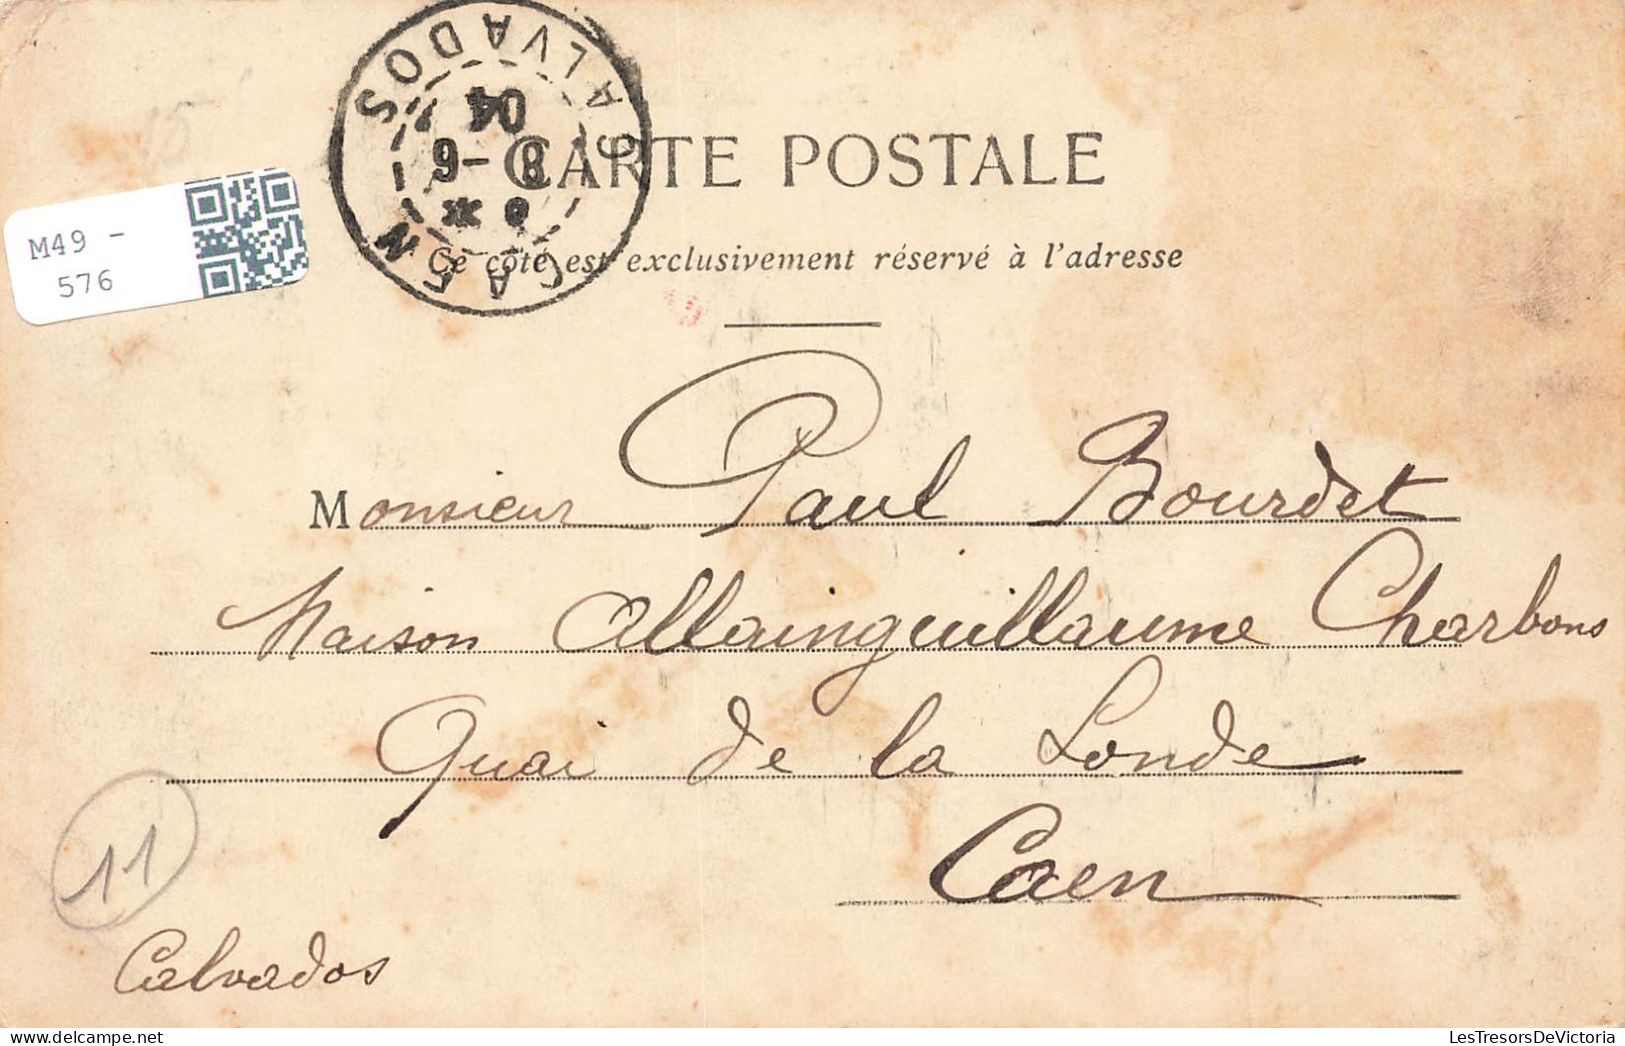 CALVADOS
CAEN
8-6
04
M49 -
576
CARTE POSTALE
Ce côté est exclusivement réservé à l'adresse
Monsieur Paul Bourdet
Maison Allainguillaume Charbons
Quai de la Londe
Caen
11
Calvados
LesTresorsDeVictoria